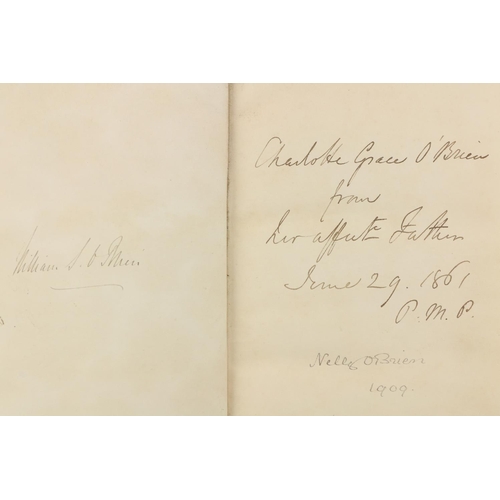 William S. O'Brien
Charlotte Grace O'Brien
from
her affect. Father
June 29. 1861
P. M. P.
Nelly O'Brien
1909.